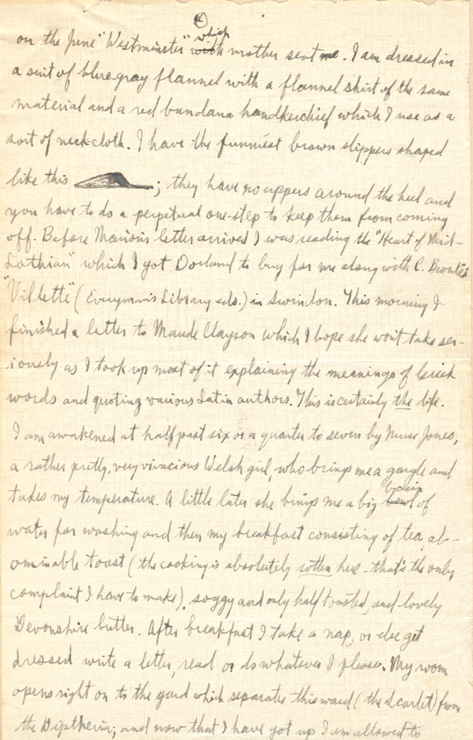 ②
on the June "Westminster" which mother sent me. I am dressed in
a suit of blue-gray flannel with a flannel shirt of the same
material and a red bandana handkerchief which I use as a
sort of neckcloth. I have the funniest brown slippers shaped
like this ; they have no uppers around the heel and
you have to do a perpetual one-step to keep them from coming
off. Before Marion's letter arrived I was reading the "Heart of Mid-
Lothian" which I got Dorland to buy for me along with C. Brontë's
"Villette" (Everyman's Library eds.) in Swindon. This morning I
finished a letter to Maude Clayson which I hope she won't take ser-
iously as I took up most of it explaining the meanings of Greek
words and quoting various Latin authors. This is certainly the life.
I am awakened at half past six or a quarter to seven by Nurse Jones,
a rather pretty, very vivacious Welsh girl, who brings me a gargle and
takes my temperature. A little later she brings me a big basin of
water for washing and then my breakfast consisting of tea ab-
ominable toast (the cooking is absolutely rotten here - that's the only
complaint I have to make), soggy and only half toasted, and lovely
Devonshire butter. After breakfast I take a nap, or else get
dressed write a letter, read or do whatever I please. My room
opens right on to the yard which separates this ward (the Scarlet) from
the Diptheria; and now that I have got up I am allowed to